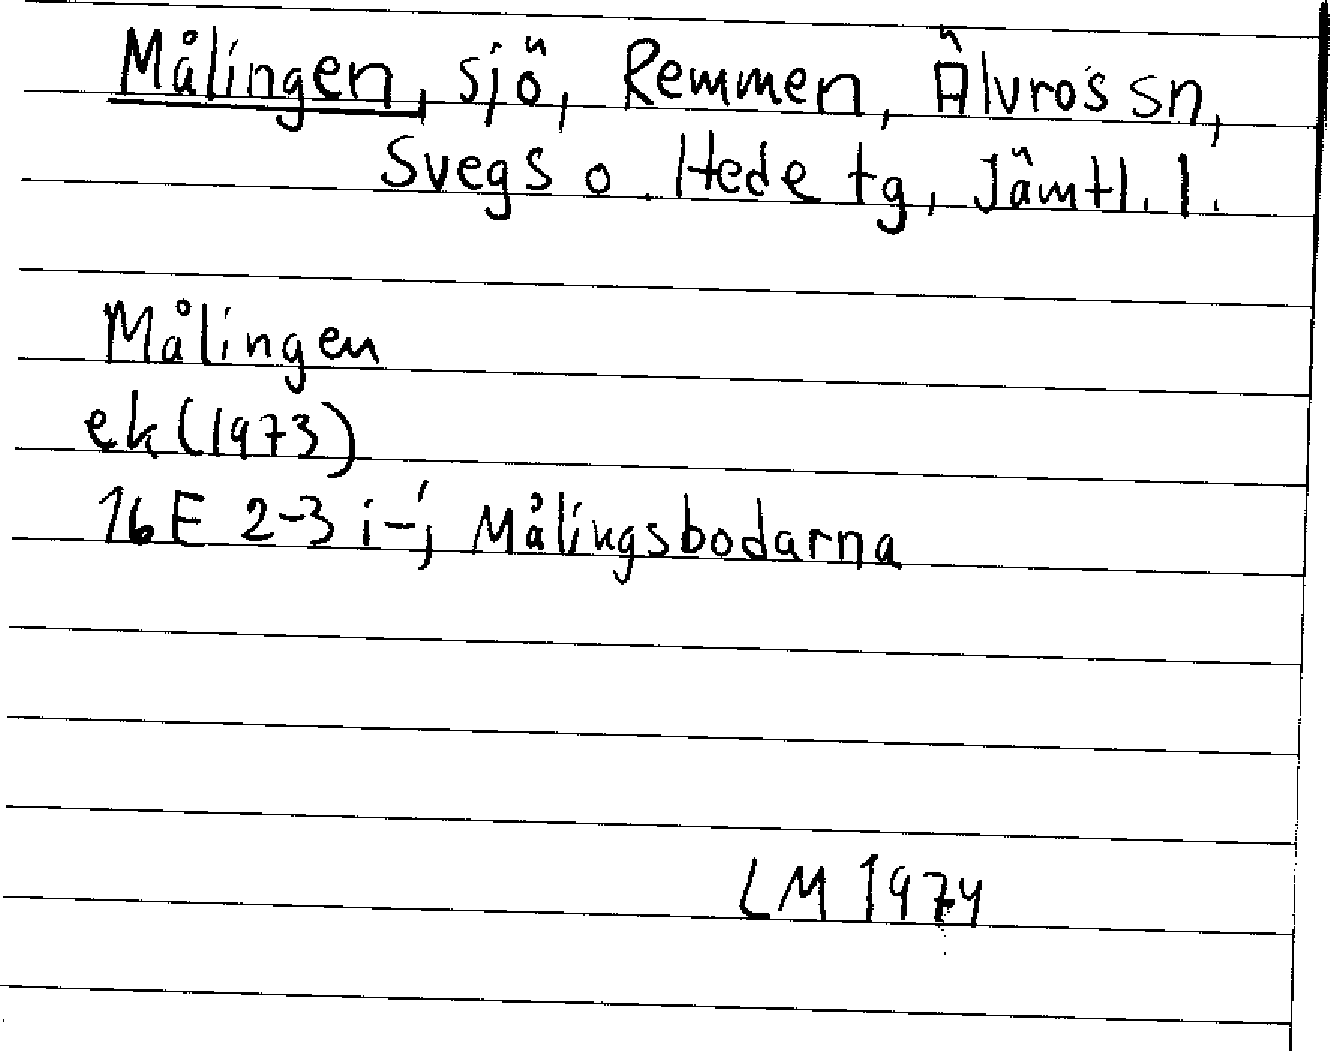 Målingen, sjö, Remmen, Älvros sn,
Svegs o. Hede tg, Jämtl. l.
Målingen
ek (1973)
16E 2-3 i-j Målingsbodarna
LM 1974